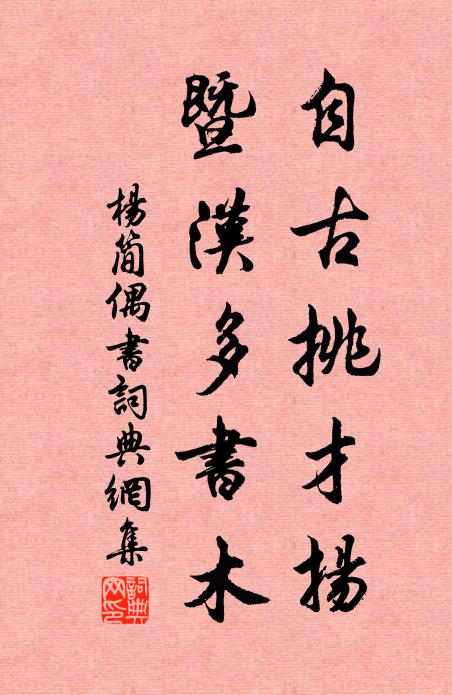 自古挑才揚
暨漢多書木
楊簡偶書詞典網集
詞典網印